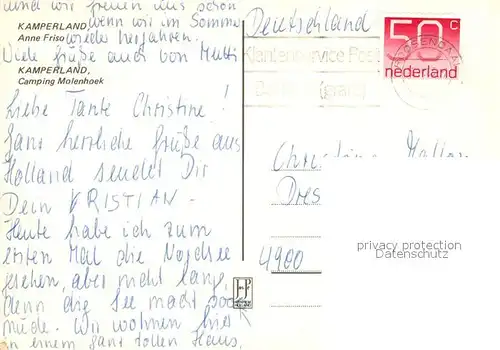 und wir freuen uns schon
wenn wir im Somme
KAMPERLAND
Anne Friso
wieder herfahren.
Viele Grüße auch von Mutti
KAMPERLAND,
Camping Molenhoek
Liebe Tante Christine!
Ganz herzliche Grüße aus
Holland sendet Dir
Dein KRISTIAN -
Heute habe ich zum
ersten Mal die Nordsee
gesehen, aber nicht lange,
denn die See macht
müde. Wir wohnen hier
in einem ganz tollen Haus,
Deutschland
50 c
nederland
Klantenservice Post
(gratis)
Dres
4900
privacy protection
Datenschutz